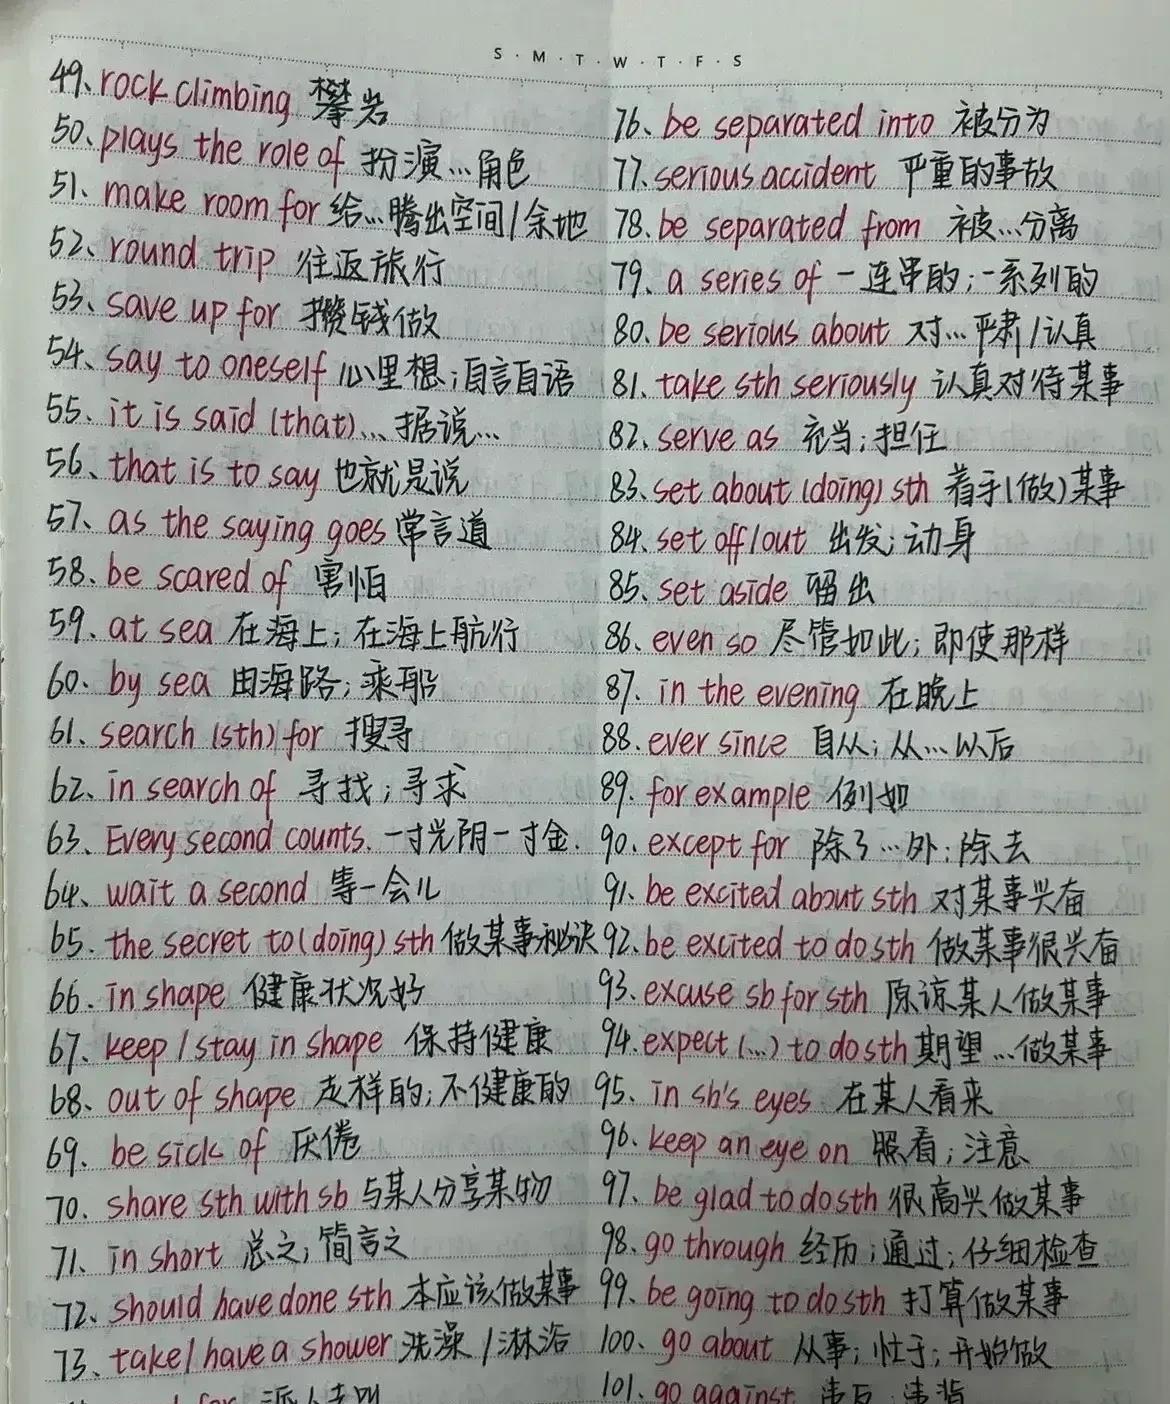 S · M · T · W · T · F · S
49、rock climbing 攀岩
50、plays the role of 扮演…角色
51、make room for 给…腾出空间/余地
52、round trip 往返旅行
53、save up for 攒钱做
54、say to oneself 心里想;自言自语
55、it is said (that)… 据说…
56、that is to say 也就是说
57、as the saying goes 常言道
58、be scared of 害怕
59、at sea 在海上;在海上航行
60、by sea 由海路;乘船
61、search (sth) for 搜寻
62、in search of 寻找;寻求
63、Every second counts. 一寸光阴一寸金.
64、wait a second 等一会儿
65、the secret to (doing) sth 做某事秘诀
66、in shape 健康状况好
67、keep / stay in shape 保持健康
68、out of shape 走样的;不健康的
69、be sick of 厌倦
70、share sth with sb 与某人分享某物
71、in short 总之;简言之
72、should have done sth 本应该做某事
73、take / have a shower 洗澡 / 淋浴
for 派人去叫
76、be separated into 被分为
77、serious accident 严重的事故
78、be separated from 被…分离
79、a series of 一连串的;一系列的
80、be serious about 对…严肃/认真
81、take sth seriously 认真对待某事
82、serve as 充当;担任
83、set about (doing) sth 着手(做)某事
84、set off/out 出发;动身
85、set aside 留出
86、even so 尽管如此;即使那样
87、in the evening 在晚上
88、ever since 自从;从…以后
89、for example 例如
90、except for 除了…外;除去
91、be excited about sth 对某事兴奋
92、be excited to do sth 做某事很兴奋
93、excuse sb for sth 原谅某人做某事
94、expect (…) to do sth 期望…做某事
95、in sb's eyes 在某人看来
96、keep an eye on 照看;注意
97、be glad to do sth 很高兴做某事
98、go through 经历;通过;仔细检查
99、be going to do sth 打算做某事
100、go about 从事;忙于;开始做
101、go against 违反;违背